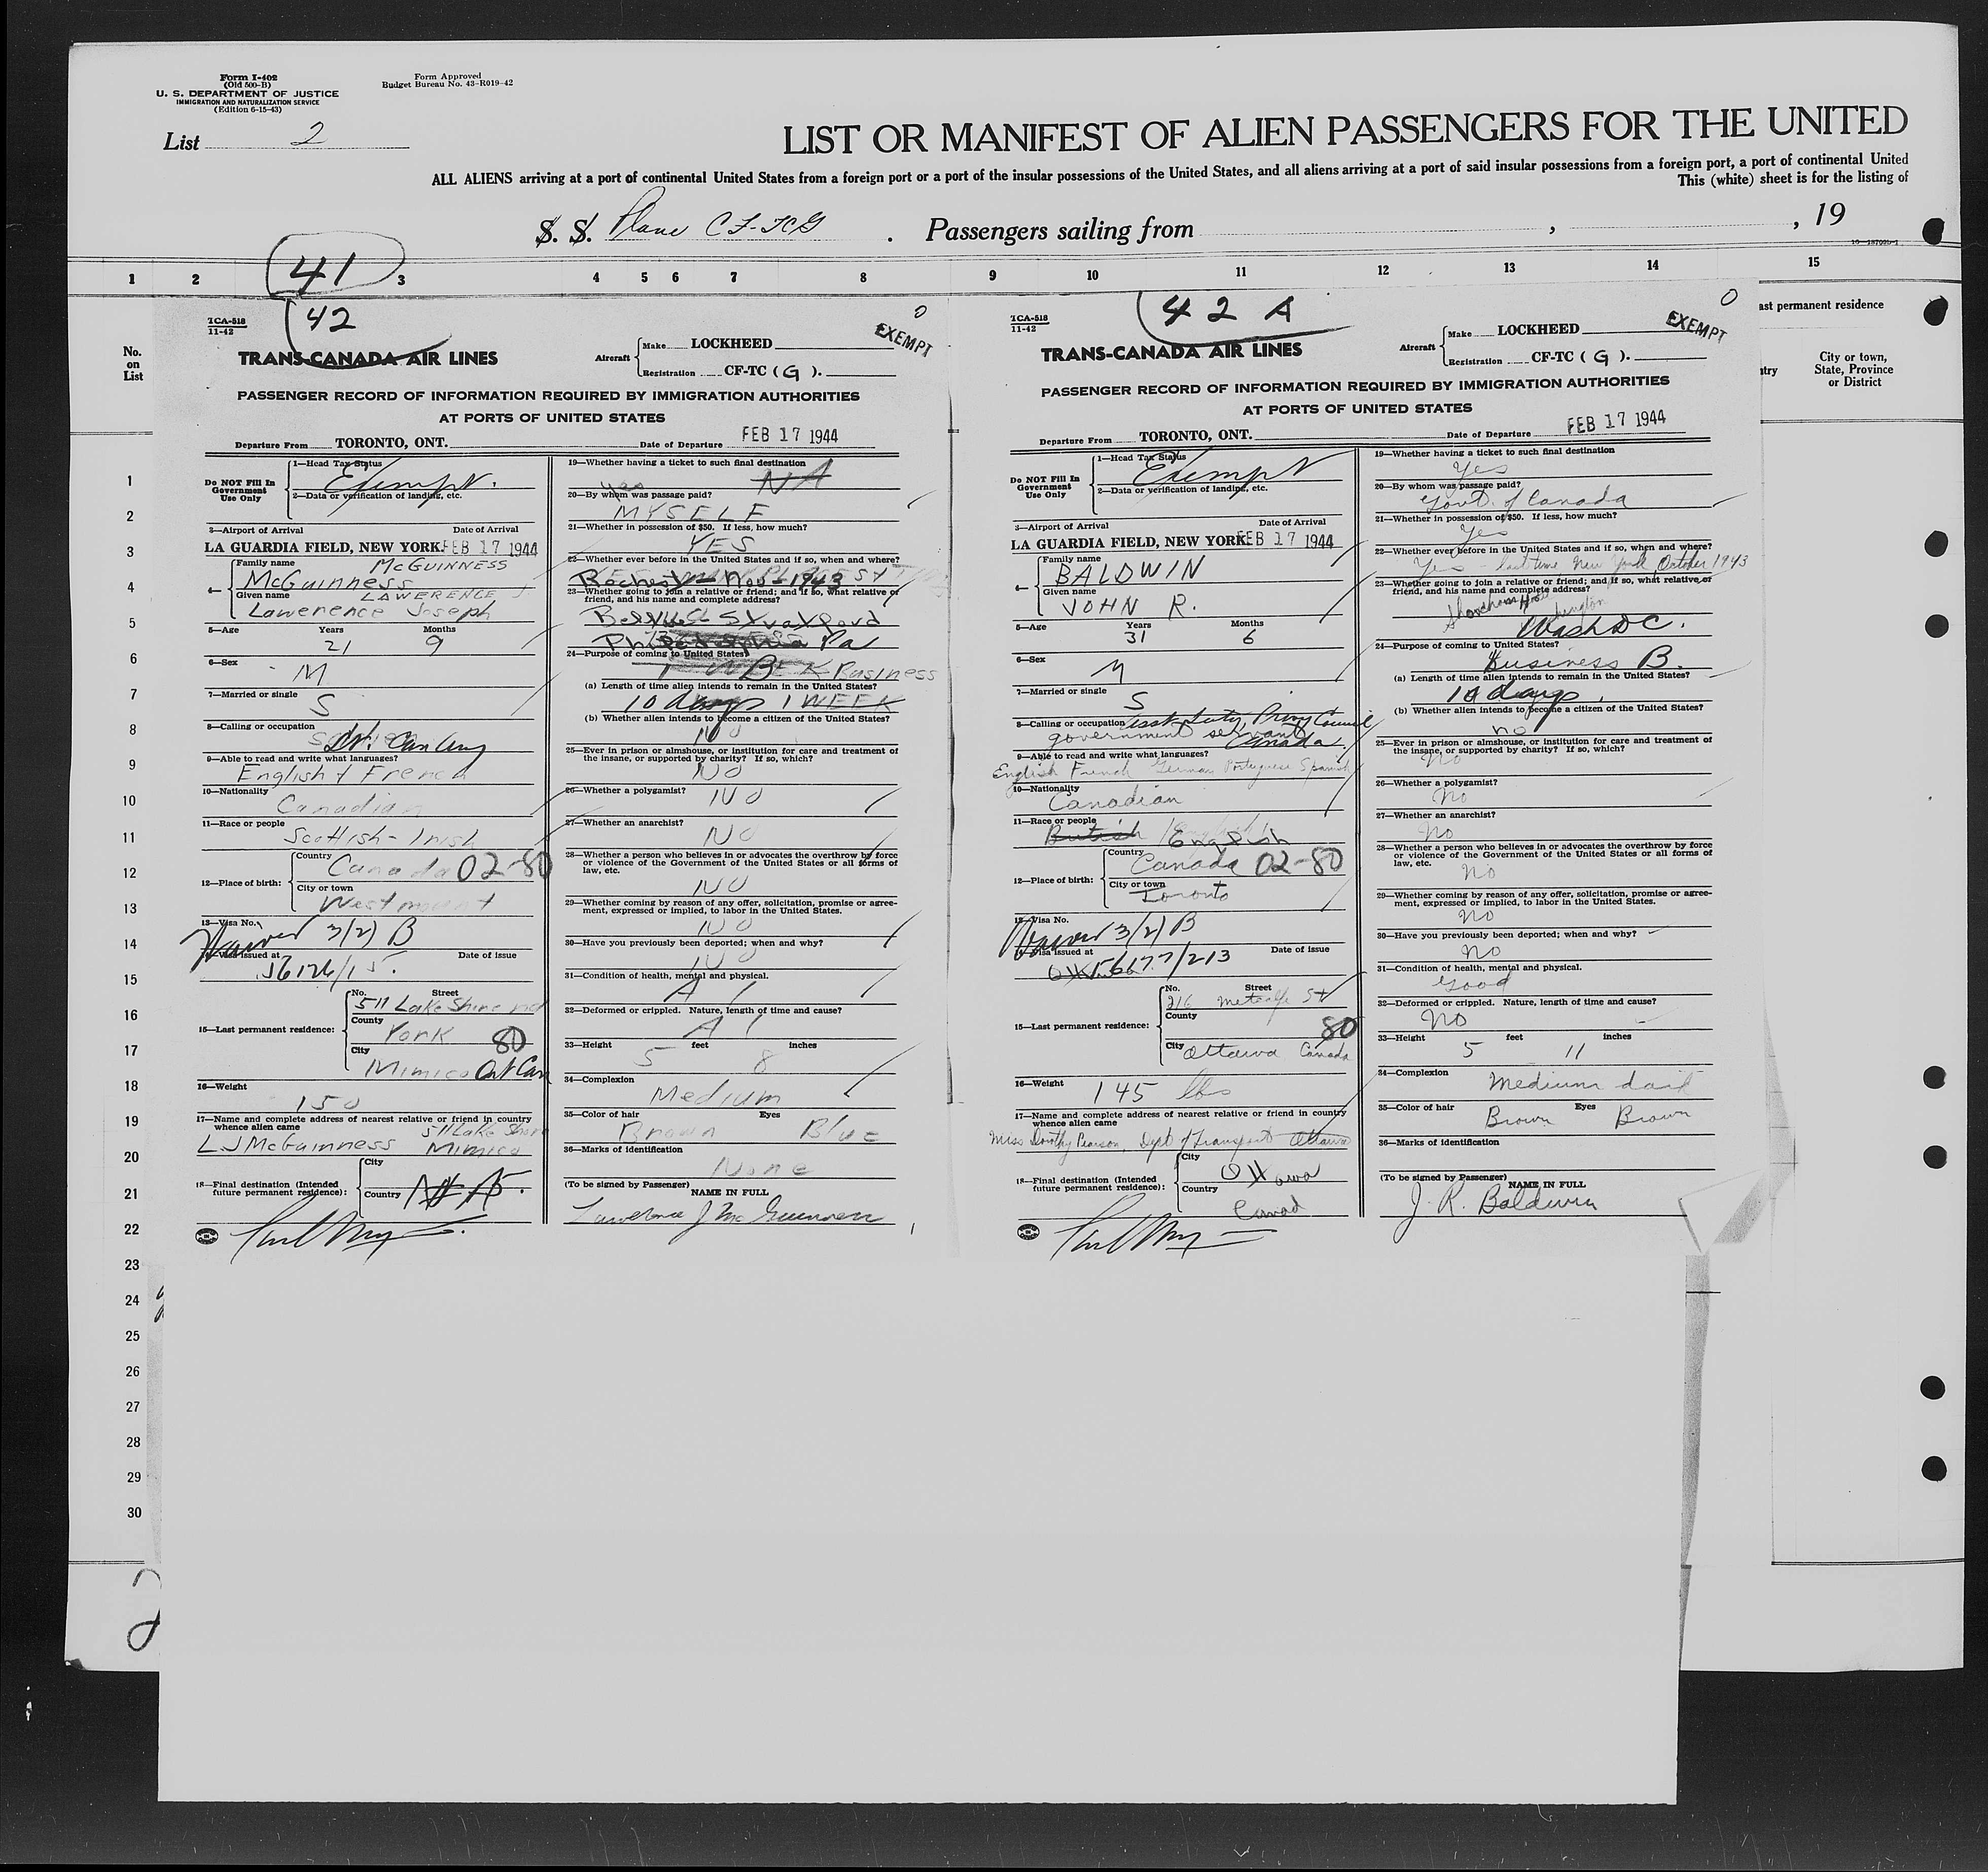 Form I-402
(Old 500-B)
U. S. DEPARTMENT OF JUSTICE
IMMIGRATION AND NATURALIZATION SERVICE
(Edition 6-15-43)
Form Approved
Budget Bureau No. 43-R019-42
List 2
LIST OR MANIFEST OF ALIEN PASSENGERS FOR THE UNITED
ALL ALIENS arriving at a port of continental United States from a foreign port or a port of the insular possessions of the United States, and all aliens arriving at a port of said insular possessions from a foreign port, a port of continental United
This (white) sheet is for the listing of
S. S. Plane CF-TCG . Passengers sailing from , , 19
1 2 3 4 5 6 7 8 9 10 11 12 13 14 15
41
No.
on
List
ast permanent residence
ntry
City or town,
State, Province
or District
1
2
3
4
5
6
7
8
9
10
11
12
13
14
15
16
17
18
19
20
21
22
23
24
25
26
27
28
29
30
TCA-518
11-42
42
0
EXEMPT
TRANS-CANADA AIR LINES
Aircraft
Make LOCKHEED
Registration CF-TC ( G ).
PASSENGER RECORD OF INFORMATION REQUIRED BY IMMIGRATION AUTHORITIES
AT PORTS OF UNITED STATES
Departure From TORONTO, ONT. Date of Departure FEB 17 1944
Do NOT Fill In
Government
Use Only
1—Head Tax Status
Exempt.
2—Data or verification of landing, etc.
3—Airport of Arrival Date of Arrival
LA GUARDIA FIELD, NEW YORK. FEB 17 1944
4—
Family name McGUINNESS
McGuinness
Given name LAWERENCE J.
Lawerence Joseph
5—Age Years Months
21 9
6—Sex
M
7—Married or single
S
8—Calling or occupation
Lt. Can Army
9—Able to read and write what languages?
English & French
10—Nationality
Canadian
11—Race or people
Scottish-Irish
12—Place of birth:
Country
Canada 02-80
City or town
Westmount
13—Visa No.
Waiver 3/2) B
14—Visa issued at Date of issue
56126/15.
15—Last permanent residence:
No. Street
511 Lake Shore
County
York 80
City
Mimico Ont Can
16—Weight
150
17—Name and complete address of nearest relative or friend in country
whence alien came
511 Lake Shore
L J McGuinness Mimico
18—Final destination (Intended
future permanent residence):
City
Country
19—Whether having a ticket to such final destination
yes NA
20—By whom was passage paid?
MYSELF
21—Whether in possession of $50. If less, how much?
YES
22—Whether ever before in the United States and if so, when and where?
Rochester Nov-1943
23—Whether going to join a relative or friend; and if so, what relative or
friend, and his name and complete address?
Stratford
Pa
24—Purpose of coming to United States?
B Business
(a) Length of time alien intends to remain in the United States?
10 days 1 WEEK
(b) Whether alien intends to become a citizen of the United States?
NO
25—Ever in prison or almshouse, or institution for care and treatment of
the insane, or supported by charity? If so, which?
NO
26—Whether a polygamist?
NO
27—Whether an anarchist?
NO
28—Whether a person who believes in or advocates the overthrow by force
or violence of the Government of the United States or all forms of
law, etc.
NO
29—Whether coming by reason of any offer, solicitation, promise or agree-
ment, expressed or implied, to labor in the United States.
NO
30—Have you previously been deported; when and why?
NO
31—Condition of health, mental and physical.
A 1
32—Deformed or crippled. Nature, length of time and cause?
A 1
33—Height feet inches
5 8
34—Complexion
Medium
35—Color of hair Eyes
Brown Blue
36—Marks of identification
None
(To be signed by Passenger)
NAME IN FULL
Lawerence J McGuinness
TCA-518
11-42
42 A
0
EXEMPT
TRANS-CANADA AIR LINES
Aircraft
Make LOCKHEED
Registration CF-TC ( G ).
PASSENGER RECORD OF INFORMATION REQUIRED BY IMMIGRATION AUTHORITIES
AT PORTS OF UNITED STATES
Departure From TORONTO, ONT. Date of Departure FEB 17 1944
Do NOT Fill In
Government
Use Only
1—Head Tax Status
Exempt
2—Data or verification of landing, etc.
3—Airport of Arrival Date of Arrival
LA GUARDIA FIELD, NEW YORK. FEB 17 1944
4—
Family name
BALDWIN
Given name
JOHN R.
5—Age Years Months
31 6
6—Sex
M
7—Married or single
S
8—Calling or occupation Asst Secty, Privy Council
government servant Canada
9—Able to read and write what languages?
English French German Portuguese Spanish
10—Nationality
Canadian
11—Race or people
British English
12—Place of birth:
Country
Canada 02-80
City or town
Toronto
13—Visa No.
Waiver 3/2) B
14—Visa issued at Date of issue
56177/213
15—Last permanent residence:
No. Street
216 Metcalfe St
County
80
City Ottawa Canada
16—Weight
145 lbs
17—Name and complete address of nearest relative or friend in country
whence alien came
Miss Dorothy Pearson, Dept of Transport Ottawa
18—Final destination (Intended
future permanent residence):
City
Ottawa
Country
Canad
19—Whether having a ticket to such final destination
Yes
20—By whom was passage paid?
Govt. of Canada
21—Whether in possession of $50. If less, how much?
Yes
22—Whether ever before in the United States and if so, when and where?
Yes - last time New York October 1943
23—Whether going to join a relative or friend; and if so, what relative or
friend, and his name and complete address?
Shoreham Hotel
Wash DC.
24—Purpose of coming to United States?
Business B.
(a) Length of time alien intends to remain in the United States?
10 days.
(b) Whether alien intends to become a citizen of the United States?
no
25—Ever in prison or almshouse, or institution for care and treatment of
the insane, or supported by charity? If so, which?
No
26—Whether a polygamist?
No
27—Whether an anarchist?
No
28—Whether a person who believes in or advocates the overthrow by force
or violence of the Government of the United States or all forms of
law, etc.
No
29—Whether coming by reason of any offer, solicitation, promise or agree-
ment, expressed or implied, to labor in the United States.
No
30—Have you previously been deported; when and why?
No
31—Condition of health, mental and physical.
Good
32—Deformed or crippled. Nature, length of time and cause?
No
33—Height feet inches
5 11
34—Complexion
Medium dark
35—Color of hair Eyes
Brown Brown
36—Marks of identification
(To be signed by Passenger)
NAME IN FULL
J. R. Baldwin